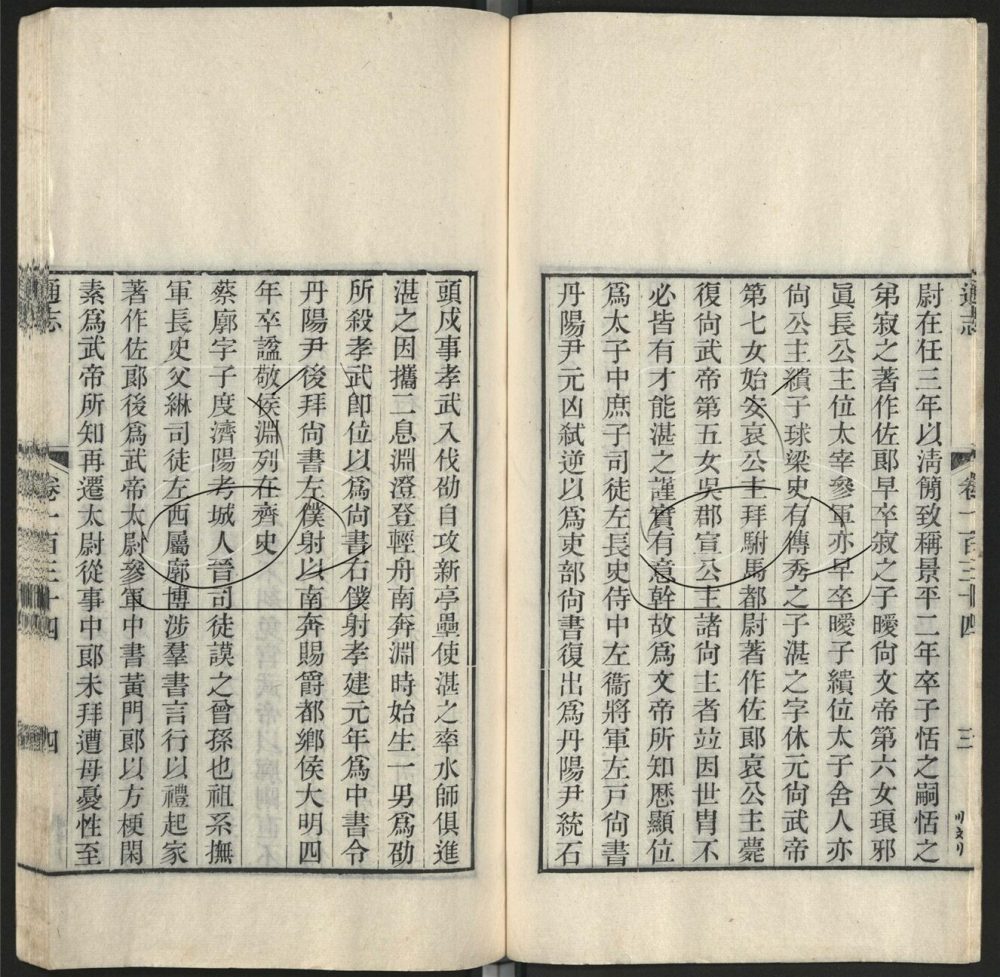 通志
卷一百三十四
三
尉在任三年以淸簡致稱景平二年卒子恬之嗣恬之
弟寂之著作佐郞早卒寂之子曖尙文帝第六女琅邪
眞長公主位太宰參軍亦早卒曖子繢位太子舍人亦
尙公主繢子球梁史有傳秀之子湛之字休元尙武帝
第七女始安哀公主拜駙馬都尉著作佐郞哀公主薨
復尙武帝第五女吳郡宣公主諸尙主者竝因世胄不
必皆有才能湛之謹實有意幹故爲文帝所知歷顯位
爲太子中庶子司徒左長史侍中左衞將軍左戸尙書
丹陽尹元凶弑逆以爲吏部尙書復出爲丹陽尹統石
頭戍事孝武入伐劭自攻新亭壘使湛之率水師俱進
湛之因攜二息淵澄登輕舟南奔淵時始生一男爲劭
所殺孝武卽位以爲尙書右僕射孝建元年爲中書令
丹陽尹後拜尙書左僕射以南奔賜爵都鄕侯大明四
年卒諡敬侯淵列在齊史
蔡廓字子度濟陽考城人晉司徒謨之曾孫也祖系撫
軍長史父綝司徒左西屬廓博涉羣書言行以禮起家
著作佐郞後爲武帝太尉參軍中書黃門郞以方梗閑
素爲武帝所知再遷太尉從事中郞未拜遭母憂性至
通志
卷一百三十四
四